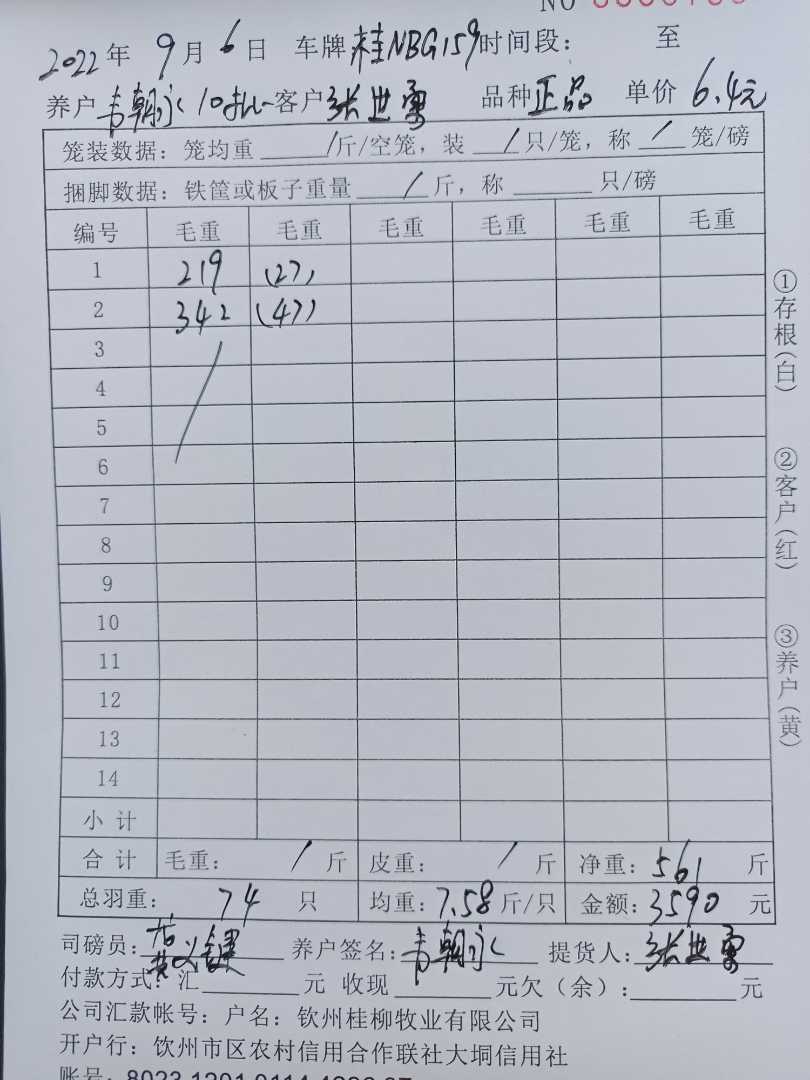 NO
2022年 9月 6日 车牌 桂NBG159 时间段： 至
养户 韦朝永 10批 客户 张世勇 品种 正品 单价 6.4元
笼装数据：笼均重 / 斤/空笼，装 / 只/笼，称 / 笼/磅
捆脚数据：铁筐或板子重量 / 斤，称 只/磅
编号 毛重 毛重 毛重 毛重 毛重 毛重
1 219 (27)
2 342 (47)
3
4
5
6
7
8
9
10
11
12
13
14
小计
合计 毛重： / 斤 皮重： / 斤 净重：561 斤
总羽重： 74 只 均重：7.58斤/只 金额：3590 元
司磅员： 养户签名：韦朝永 提货人：张世勇
付款方式：汇 元 收现 元欠（余）： 元
公司汇款帐号：户名：钦州桂柳牧业有限公司
开户行：钦州市区农村信用合作联社大垌信用社
账号：
①存根（白）
②客户（红）
③养户（黄）